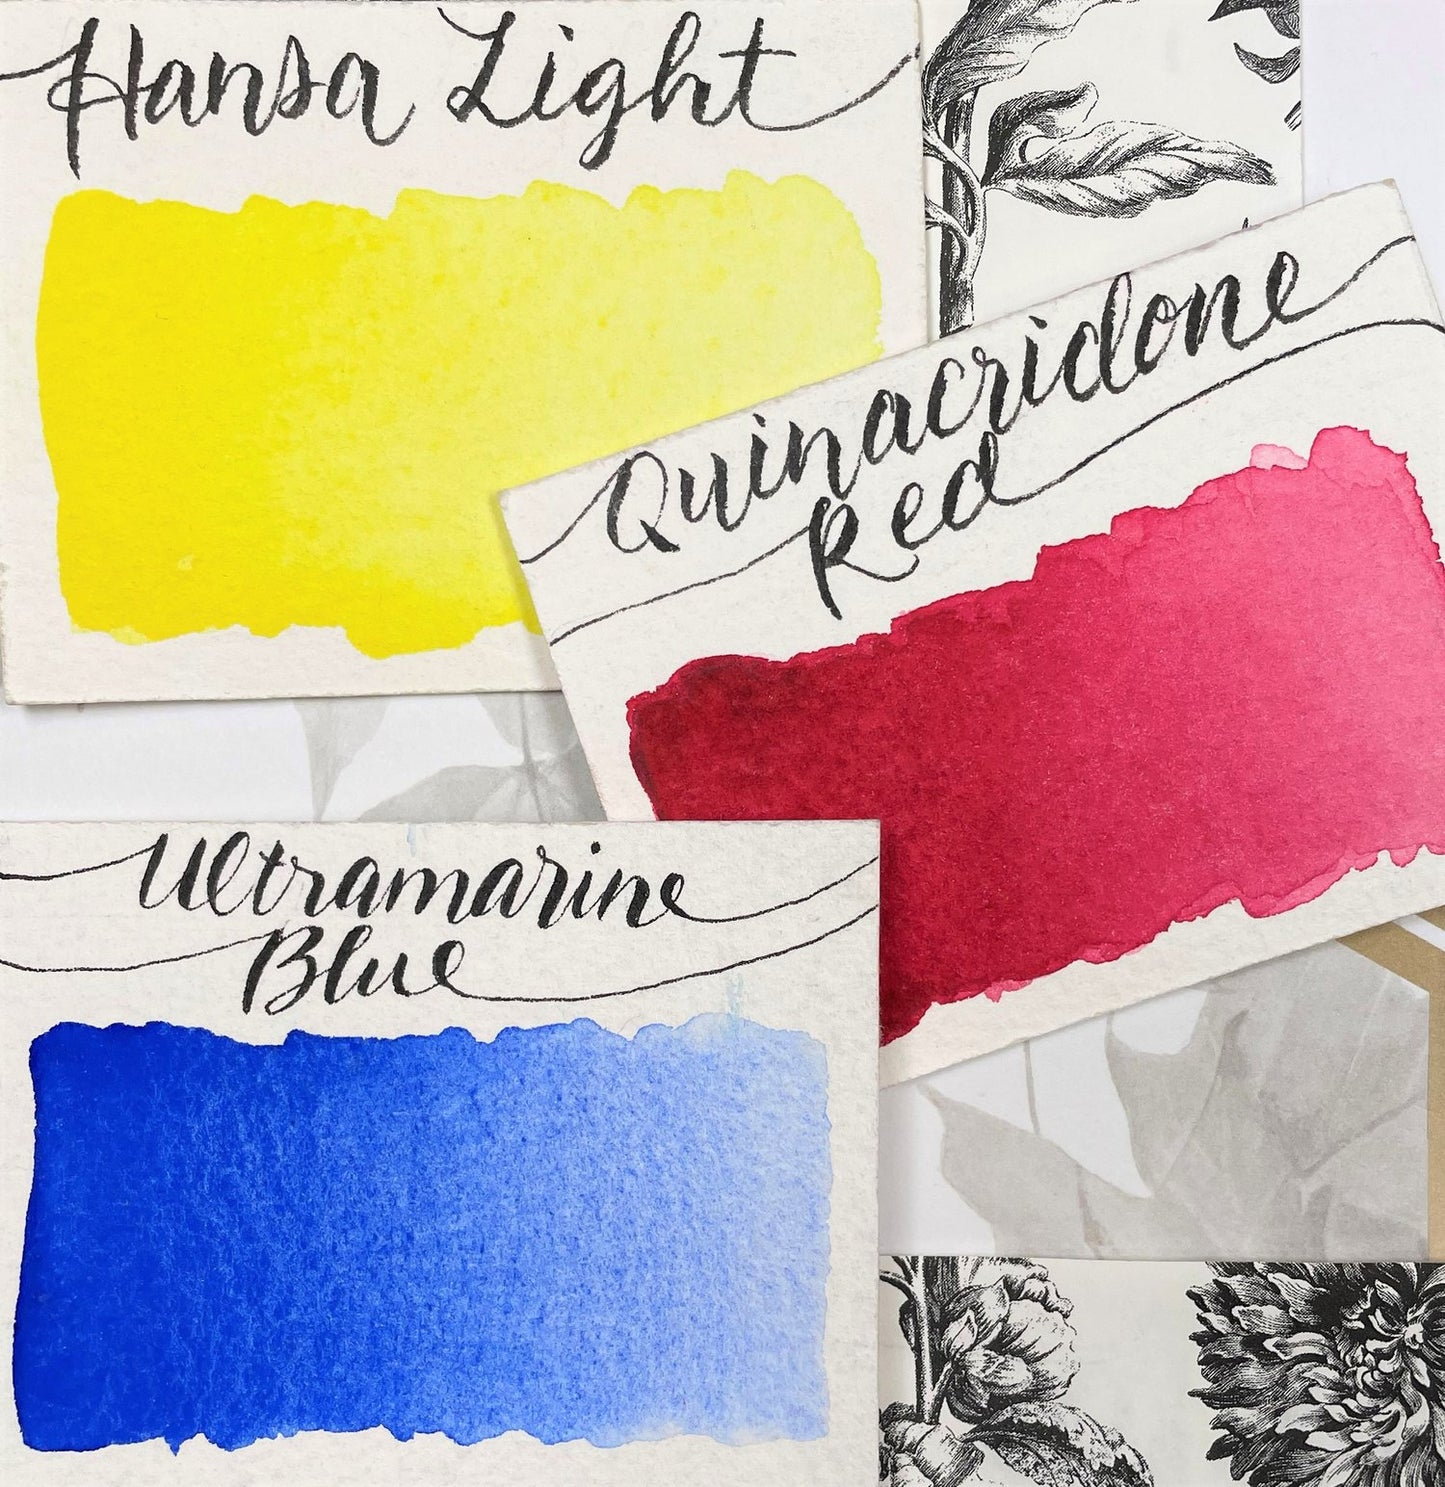 Hansa Light
Quinacridone
Red
Ultramarine
Blue